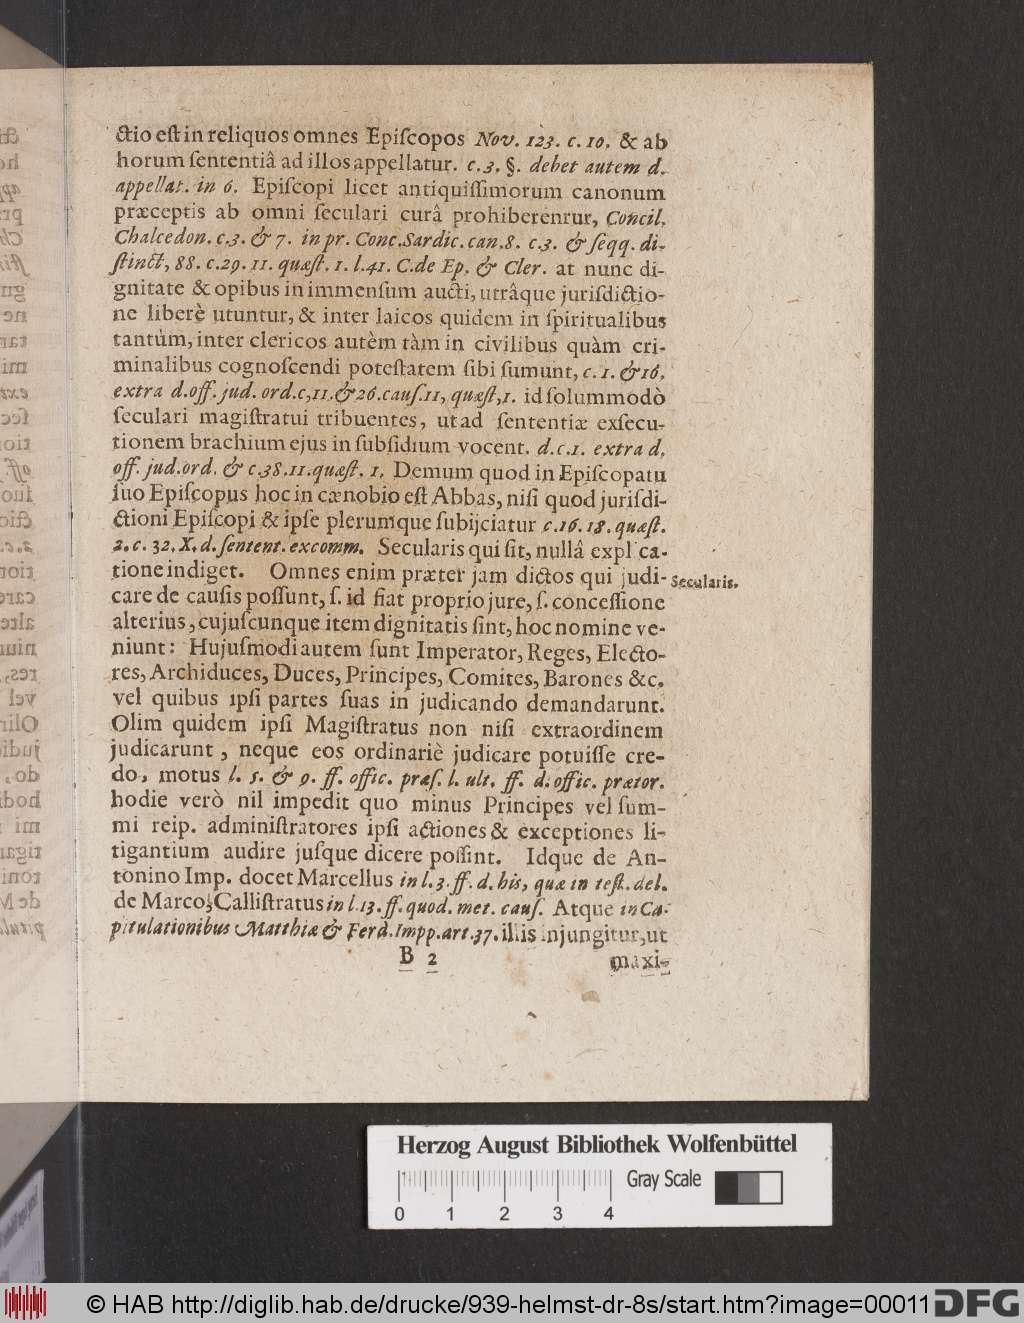 ctio eſt in reliquos omnes Epiſcopos Nov. 123. c. 10. & ab
horum ſententiâ ad illos appellatur. c. 3. §. debet autem d.
appellat. in 6. Epiſcopi licet antiquiſſimorum canonum
præceptis ab omni ſeculari curâ prohiberenrur, Concil.
Chalcedon. c.3. & 7. in pr. Conc. Sardic. can. 8. c.3. & ſeqq. di-
ſtinct, 88. c.29. 11. quæſt. 1. l.41. C. de Ep. & Cler. at nunc di-
gnitate & opibus in immenſum aucti, utrâque jurisdictio-
ne liberè utuntur, & inter laicos quidem in ſpiritualibus
tantùm, inter clericos autèm tàm in civilibus quàm cri-
minalibus cognoſcendi poteſtatem ſibi ſumunt, c. 1. & 16.
extra d. off. jud. ord. c, 11. & 26. cauſ. 11, quæſt, 1. id ſolummodò
ſeculari magiſtratui tribuentes, ut ad ſententiæ exſecu-
tionem brachium ejus in ſubſidium vocent. d. c. 1. extra d.
off. jud. ord. & c.38. 11. quæſt. 1. Demum quod in Epiſcopatu
ſuo Epiſcopus hoc in cænobio eſt Abbas, niſi quod jurisdi-
ctioni Epiſcopi & ipſe plerumque ſubijciatur c. 16. 18. quæſt.
2. c. 32. X. d. ſentent. excomm. Secularis qui ſit, nullâ expl ca-
tione indiget. Omnes enim præter jam dictos qui judi-
Secularis.
care de cauſis poſſunt, ſ. id fiat proprio jure, ſ. conceſſione
alterius, cujuſcunque item dignitatis ſint, hoc nomine ve-
niunt: Hujuſmodi autem ſunt Imperator, Reges, Electo-
res, Archiduces, Duces, Principes, Comites, Barones &c.
vel quibus ipſi partes ſuas in judicando demandarunt.
Olim quidem ipſi Magiſtratus non niſi extraordinem
judicarunt, neque eos ordinariè judicare potuiſſe cre-
do, motus l. 5. & 9. ff. offic. præſ. l. ult. ff. d. offic. prætor.
hodie verò nil impedit quo minus Principes vel ſum-
mi reip. adminiſtratores ipſi actiones & exceptiones li-
tigantium audire juſque dicere poſſint. Idque de An-
tonino Imp. docet Marcellus in l. 3. ff. d. his, quæ in teſt. del.
de Marco Calliſtratus in l. 13. ff. quod. met. cauſ. Atque in Ca-
pitulationibus Matthiæ & Ferd. Impp. art. 37. illis injungitur, ut
B 2
maxi-
Herzog August Bibliothek Wolfenbüttel
Gray Scale
0 1 2 3 4
© HAB http://diglib.hab.de/drucke/939-helmst-dr-8s/start.htm?image=00011
DFG